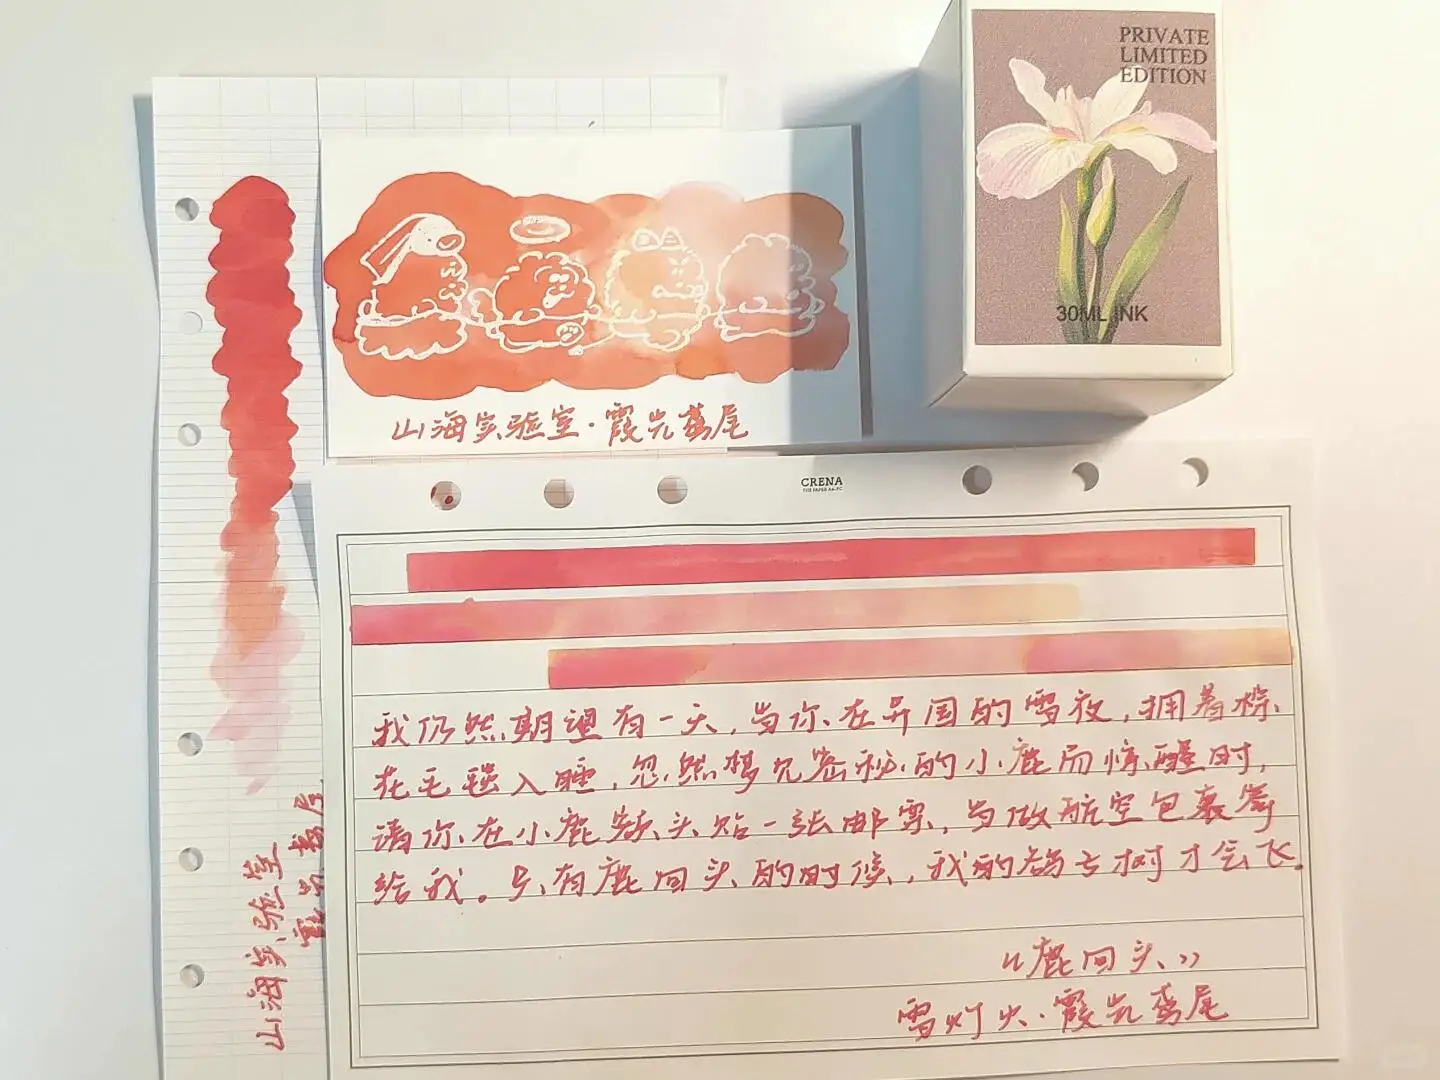 PRIVATE
LIMITED
EDITION
30ML INK
山海实验室·霞光鸢尾
CRENA
我仍然期望有一天,当你在异国的雪夜,拥着棕
花毛毯入睡,忽然梦见密秘的小鹿而惊醒时,
请你在小鹿额头贴一张邮票,当做航空包裹寄
给我。只有鹿回头的时候,我的杨与树才会飞。
《鹿回头》
雪灯火·霞光鸢尾
山海实验室
霞光鸢尾